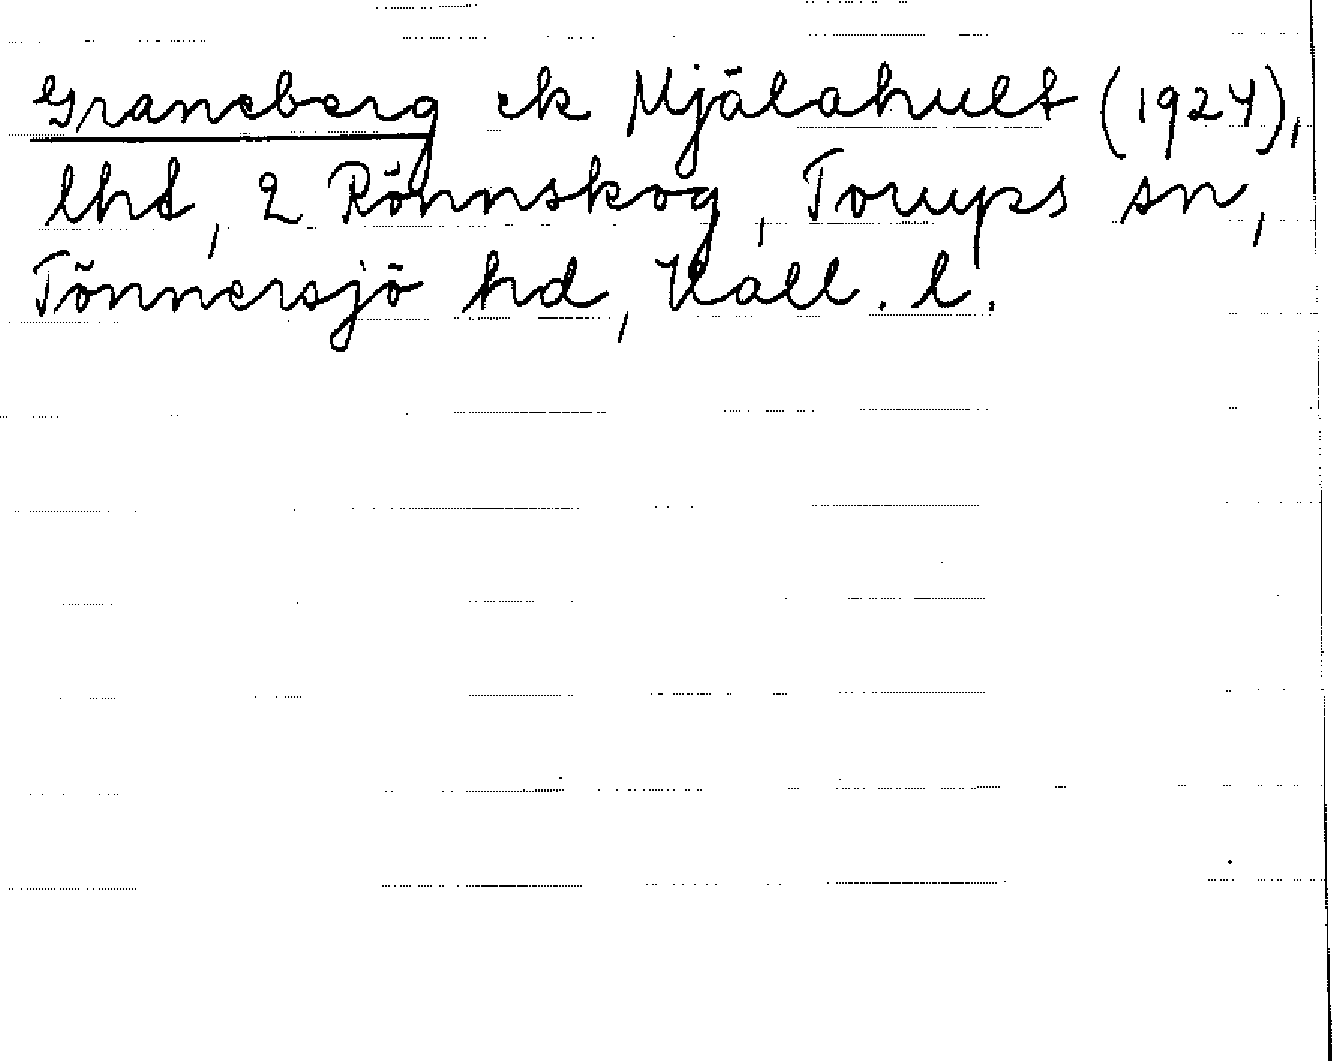 Graneberg ek Mjälahult (1924),
lhd, 2 Rönnskog, Torups sn,
Tönnersjö hd, Hall. l.